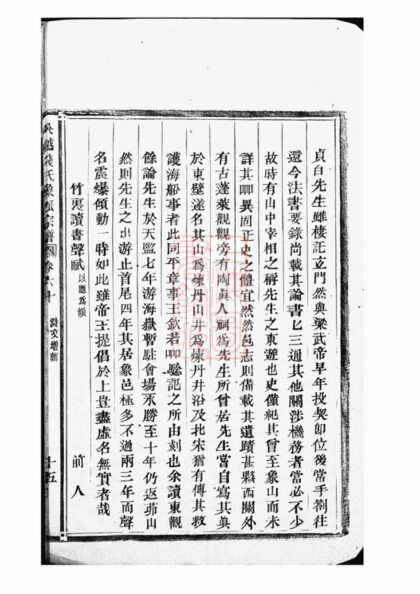 貞白先生雖棲託玄門然與梁武帝早年投契卽位後常手劄往
還今法書要錄尚載其論書匕三通其他關涉機務者當必不少
故時有山中宰相之稱先生之東遊也史僅紀其曾至象山而未
詳其聊異固正史之體宜然然邑志則備載其遺蹟甚夥西關外
有古蓬萊觀觀旁有陶眞人祠爲先生所曾居先生嘗自寫其眞
於東壁遂名其山爲煉丹山井爲煉丹井沿及北宋猶有傳其救
護海船事者此同平章事王欽若 記之所由刻也余讀東觀
餘論先生於天監七年游海嶽暫駐會 永勝至十年仍返茆山
然則先生之出游止首尾四年其居象邑極多不過兩三年而聲
名震爆傾動一時如此雖帝王提倡於上豈盡虛名無實者哉
竹裏讀書聲賦 以 爲韻
前人
吳越錢氏象 宗譜 卷六十
詩文增輯
十五